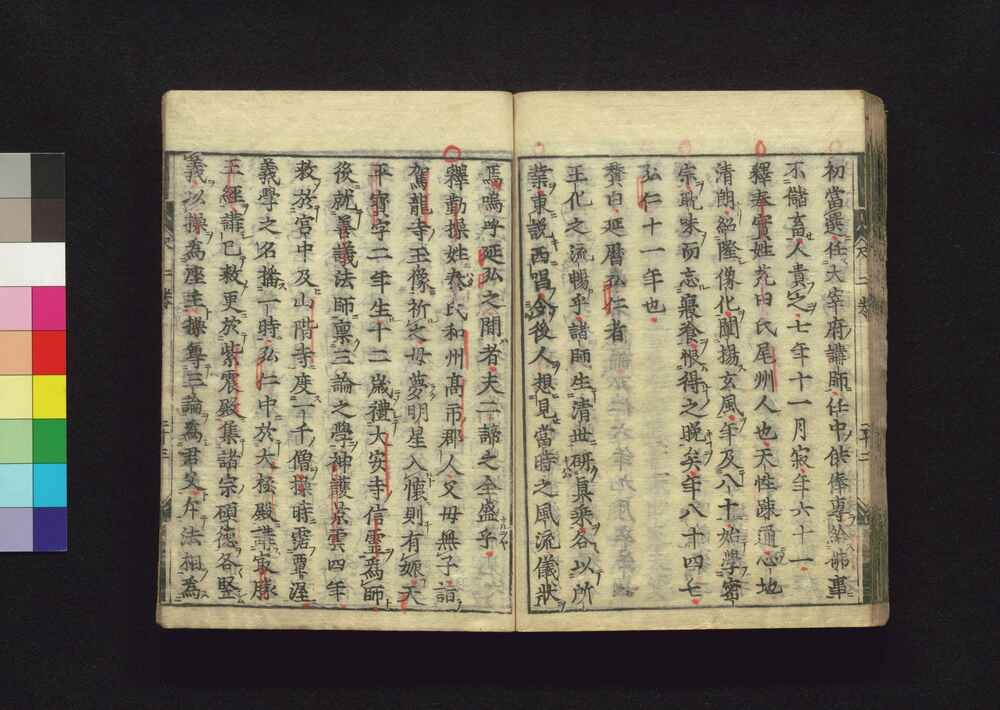 初當選任大宰府講師任中俸俸專給佛事
不儲畜人貴之七年十一月寂年六十一
釋奉實姓荒田氏尾州人也天性疎通心地
清朗紹隆像化闡揚玄風年及八十始學密
宗耽味而忘寢飡恨得之晚矣年八十四七
弘仁十一年也
贊曰延曆弘仁者
王化之流暢乎諸師生清世研眞乘各以所
業東說西唱令後人想見當時之風流儀狀
焉嗚呼延弘之間者夫二諦之全盛乎
釋勤操姓秦氏和州高市郡人父母無子詣
駕龍寺玉像祈之母夢明星入懷則有娠天
平寶字二年生十二歲禮大安寺信靈為師
後就善議法師稟三論之學神護景雲四年
敕於宮中及山階寺度一千僧操時霑覃渥
義學之名播一時弘仁中於大極殿講最勝
王經講已敕更於紫震殿集諸宗碩德各竪
義以操為座主操尊三論為君父斥法相為